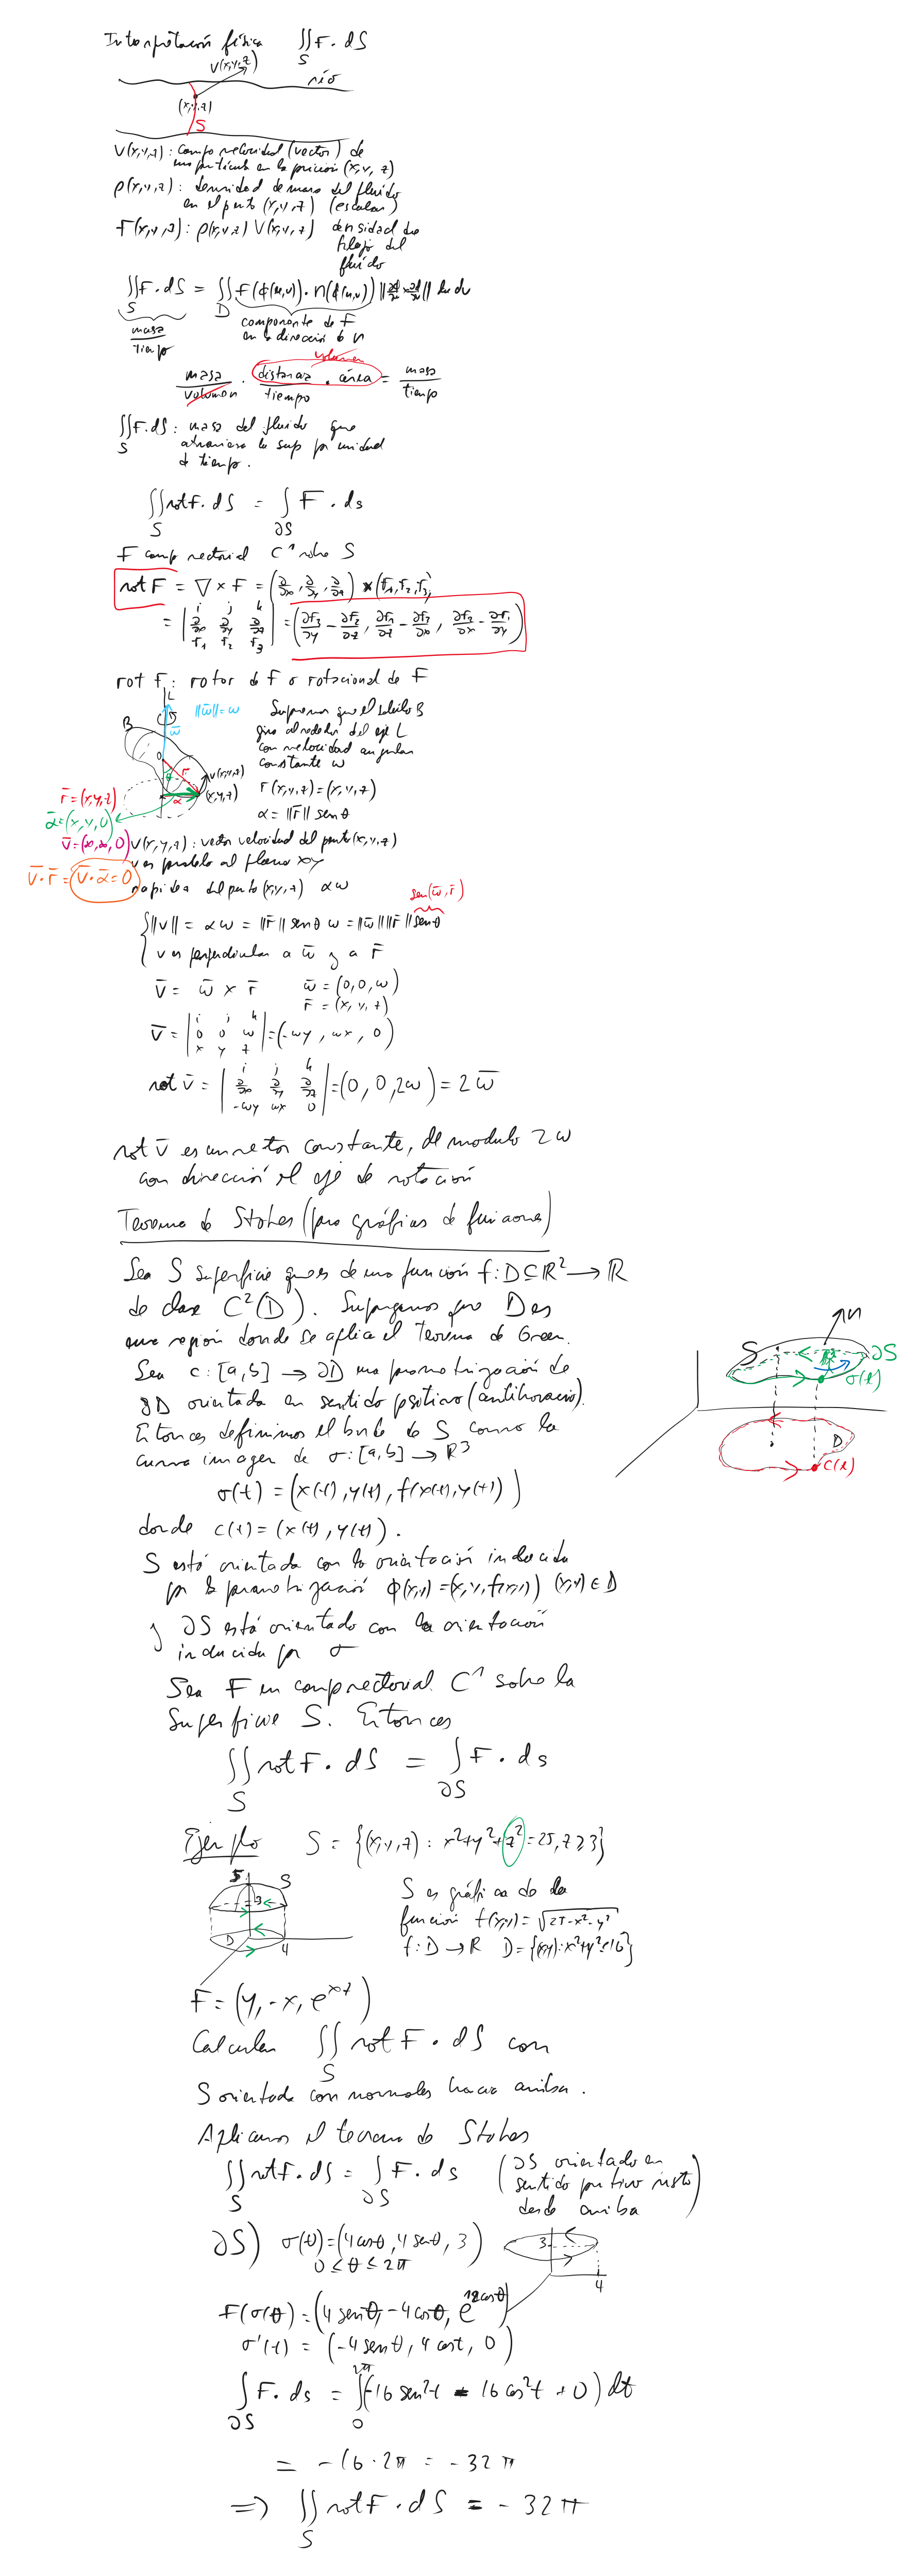 Interpretación física ∬_S F · dS
V(x,y,z)
río
(x,y,z)
S
V(x,y,z): campo velocidad (vector) de
una partícula en la posición (x,y,z)
ρ(x,y,z): densidad de masa del fluido
en el punto (x,y,z) (escalar)
F(x,y,z): ρ(x,y,z) V(x,y,z) densidad de
flujo del
fluido
∬_S F · dS = ∬_D F(ϕ(u,v)) · n(ϕ(u,v)) ‖∂ϕ/∂u × ∂ϕ/∂v‖ du dv
masa/tiempo
componente de F
en la dirección de n
volumen
masa/volumen · distancia/tiempo · área = masa/tiempo
∬_S F · dS: masa del fluido que
atraviesa la sup por unidad
de tiempo.
∬_S rot F · dS = ∫_∂S F · ds
F camp vectorial C¹ sobre S
rot F = ∇ × F = (∂/∂x, ∂/∂y, ∂/∂z) × (F₁, F₂, F₃)
= | i j k ; ∂/∂x ∂/∂y ∂/∂z ; F₁ F₂ F₃ | = (∂F₃/∂y − ∂F₂/∂z, ∂F₁/∂z − ∂F₃/∂x, ∂F₂/∂x − ∂F₁/∂y)
rot F: rotor de F o rotacional de F
L
B
w̄
‖w̄‖ = w
Supongamos que el sólido B
gira alrededor del eje L
con velocidad angular
constante w
O
θ
r
α
V(x,y,z)
(x,y,z)
r(x,y,z) = (x,y,z)
α = ‖r̄‖ sen θ
r̄ = (x,y,z)
ᾱ = (x,y,0)
v̄ = (∞,∞,0)
V(x,y,z): vector velocidad del punto (x,y,z)
v es paralelo al plano xy
v̄ · r̄ = v̄ · ᾱ = 0
rapidez del punto (x,y,z) αw
sen(w̄, r̄)
{ ‖v‖ = αw = ‖r̄‖ sen θ w = ‖w̄‖ ‖r̄‖ sen θ
v es perpendicular a w̄ y a r̄
v̄ = w̄ × r̄ w̄ = (0,0,w)
r̄ = (x,y,z)
v̄ = | i j k ; 0 0 w ; x y z | = (-wy, wx, 0)
rot v̄ = | i j k ; ∂/∂x ∂/∂y ∂/∂z ; -wy wx 0 | = (0, 0, 2w) = 2w̄
rot v̄ es un vector constante, de modulo 2w
con dirección el eje de rotación
Teorema de Stokes (para gráficas de funciones)
Sea S superficie que es de una función f: D ⊆ ℝ² → ℝ
de clase C²(D). Supongamos que D es
una región donde se aplica el Teorema de Green.
Sea c: [a,b] → ∂D una parametrización de
∂D orientada en sentido positivo (antihorario).
Entonces definimos el borde de S como la
curva imagen de σ: [a,b] → ℝ³
σ(t) = (x(t), y(t), f(x(t), y(t)))
donde c(t) = (x(t), y(t)).
n
S
∂S
σ(t)
D
c(t)
S está orientada con la orientación inducida
por la parametrización ϕ(x,y) = (x,y,f(x,y)) (x,y) ∈ D
y ∂S está orientado con la orientación
inducida por σ
Sea F un camp vectorial C¹ sobre la
superficie S. Entonces
∬_S rot F · dS = ∫_∂S F · ds
Ejemplo S = {(x,y,z): x²+y²+z² = 25, z ≥ 3}
5
S
3
D
4
S es gráfica de la
función f(x,y) = √(25-x²-y²)
f: D → ℝ D = {(x,y): x²+y² ≤ 16}
F = (y, -x, e^{xz})
Calcular ∬_S rot F · dS con
S orientada con normales hacia arriba.
Aplicamos el teorema de Stokes
∬_S rot F · dS = ∫_∂S F · ds (∂S orientado en
sentido positivo visto
desde arriba)
∂S) σ(θ) = (4cosθ, 4senθ, 3)
0 ≤ θ ≤ 2π
3
4
F(σ(θ)) = (4senθ, -4cosθ, e^{12cosθ})
σ'(t) = (-4senθ, 4cost, 0)
∫_∂S F · ds = ∫_0^{2π} (-16 sen²t − 16 cos²t + 0) dt
= -16 · 2π = -32π
⇒ ∬_S rot F · dS = -32π